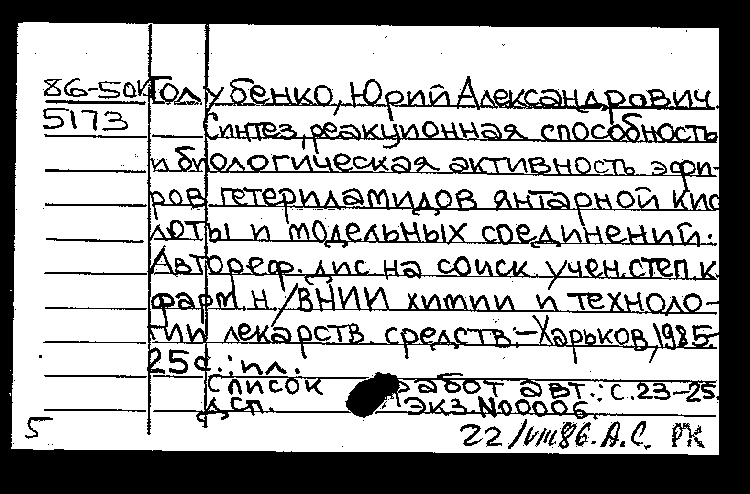 86-50к Голубенко, Юрий Александрович.
5173 Синтез, реакционная способность
и биологическая активность эфи-
ров гетериламидов янтарной кис
лоты и модельных соединений:
Автореф. дис на соиск учен. степ. к
фарм. н. /ВНИИ химии и техноло-
гии лекарств. средств.-Харьков, 1985.-
25с.: ил.
Список работ авт.: с. 23-25.
Дсп. Экз. N00006.
5 22/VIII86. А.С. РК